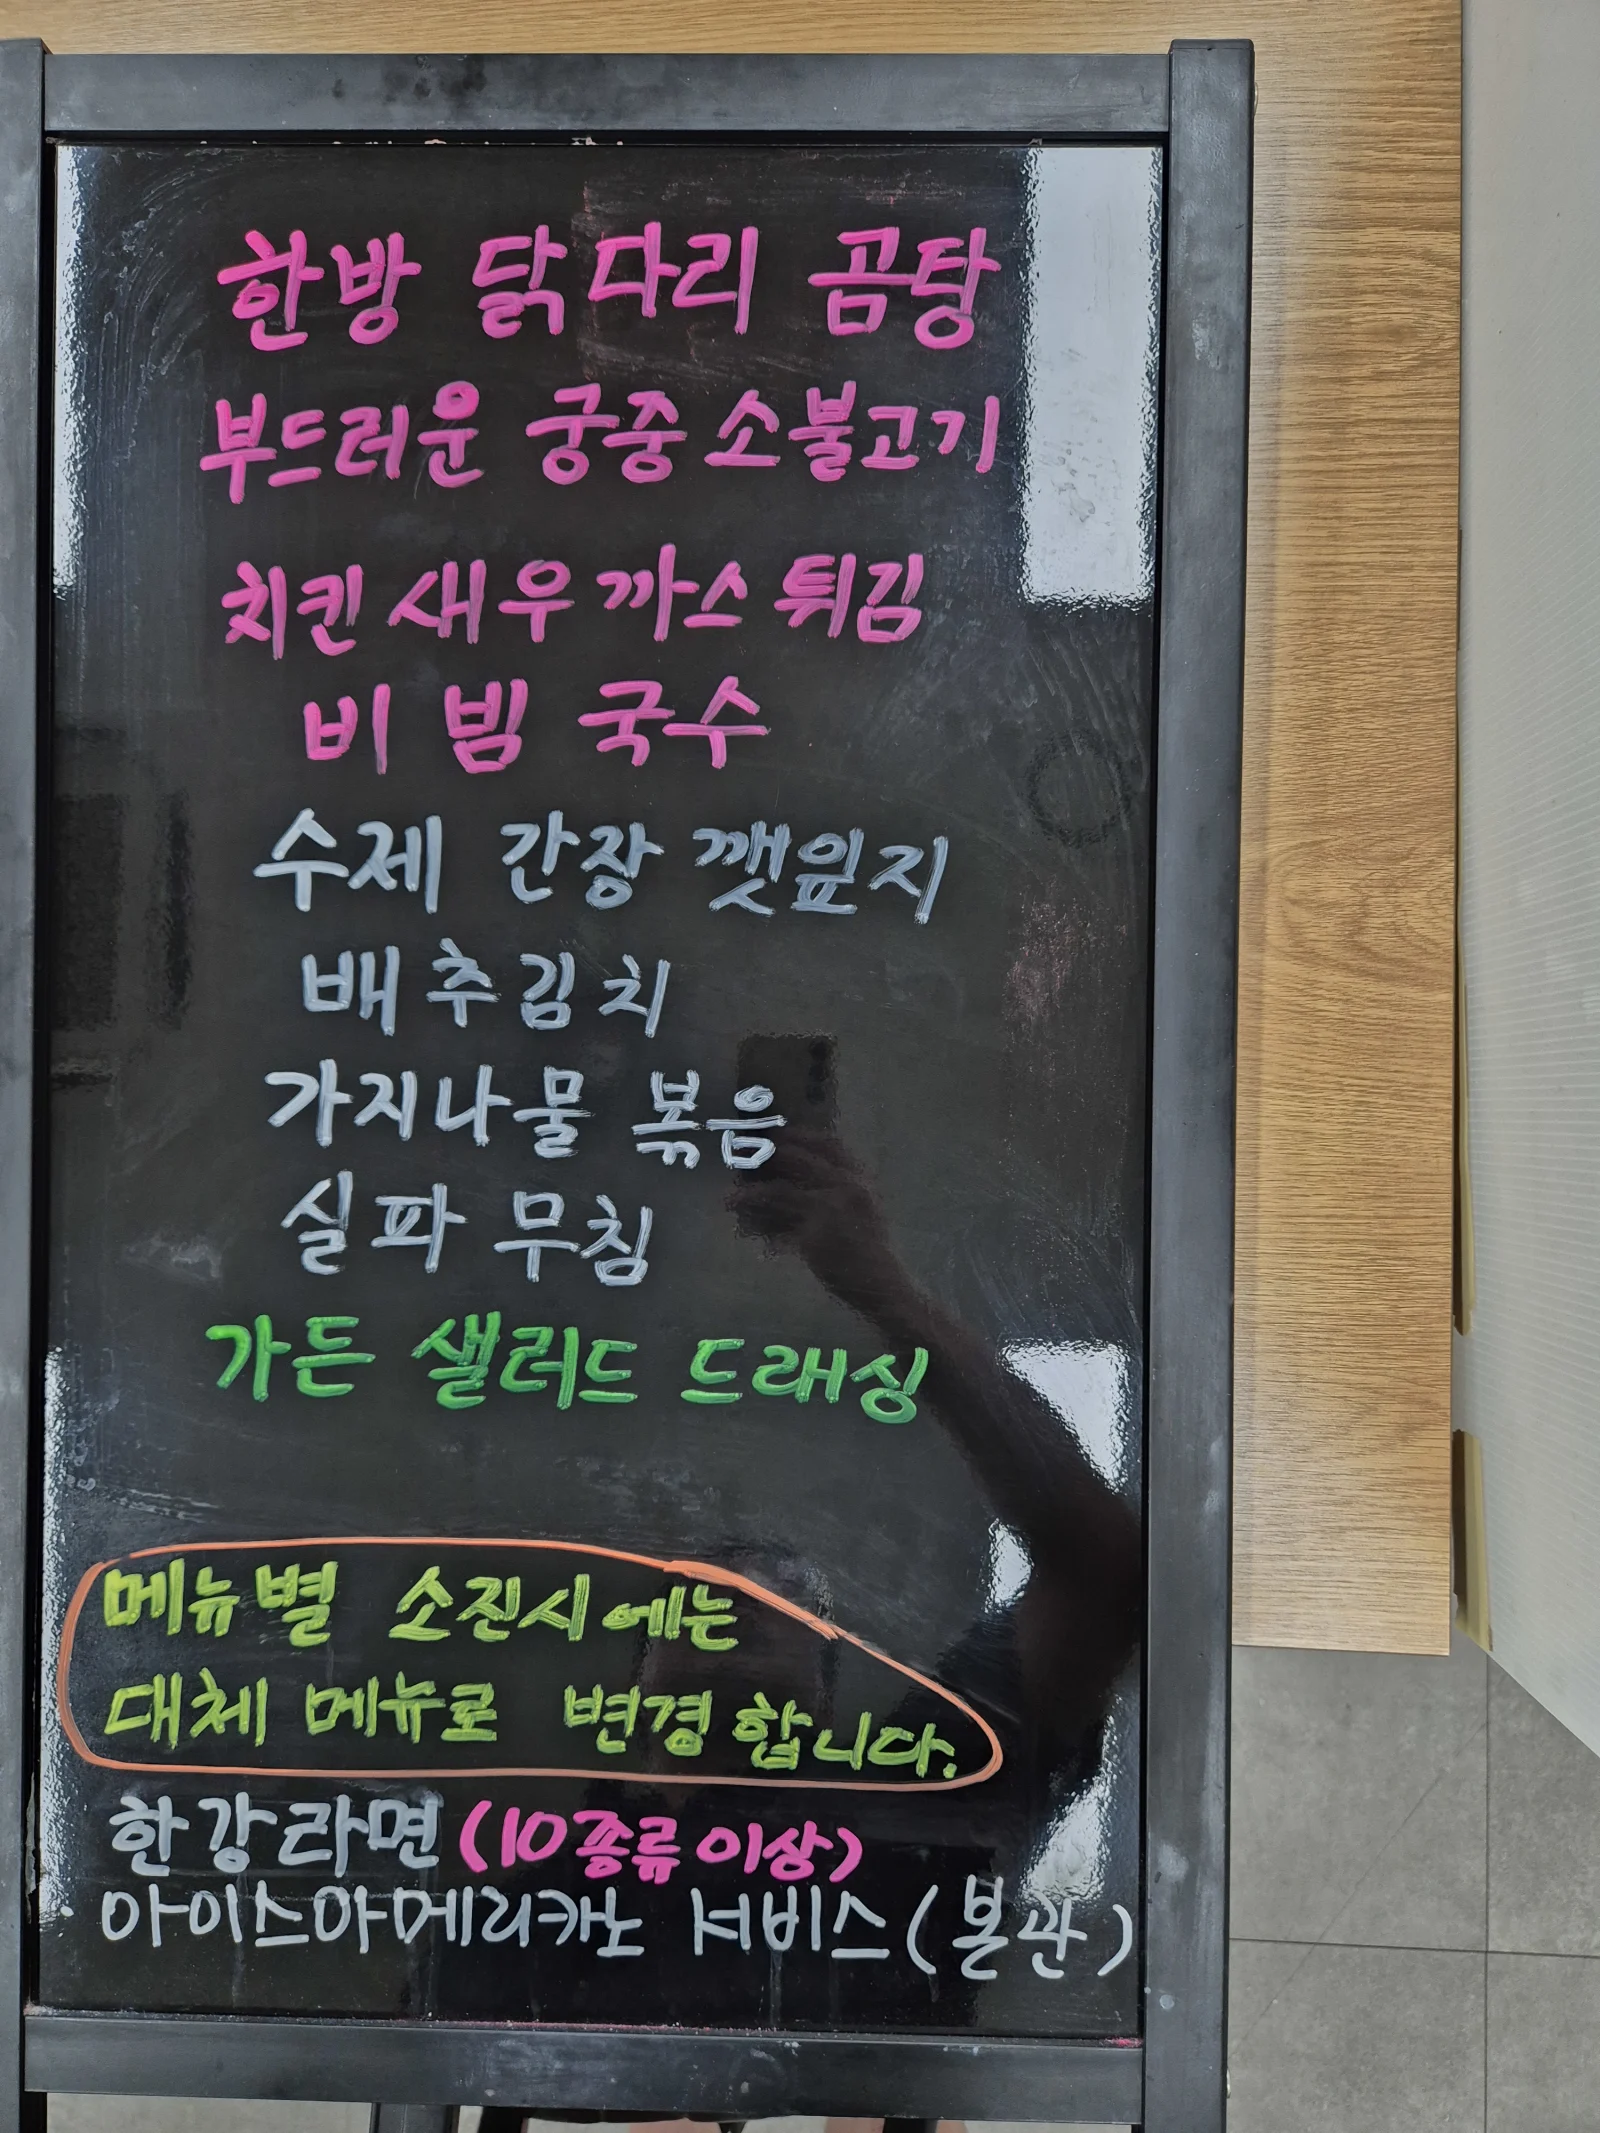 한방 닭다리 곰탕
부드러운 궁중 소불고기
치킨 새우 까스 튀김
비빔 국수
수제 간장 깻잎지
배추김치
가지나물 볶음
실파 무침
가든 샐러드 드래싱
메뉴별 소진시에는
대체 메뉴로 변경 합니다.
한강라면 (10종류 이상)
아이스아메리카노 서비스 (본관)